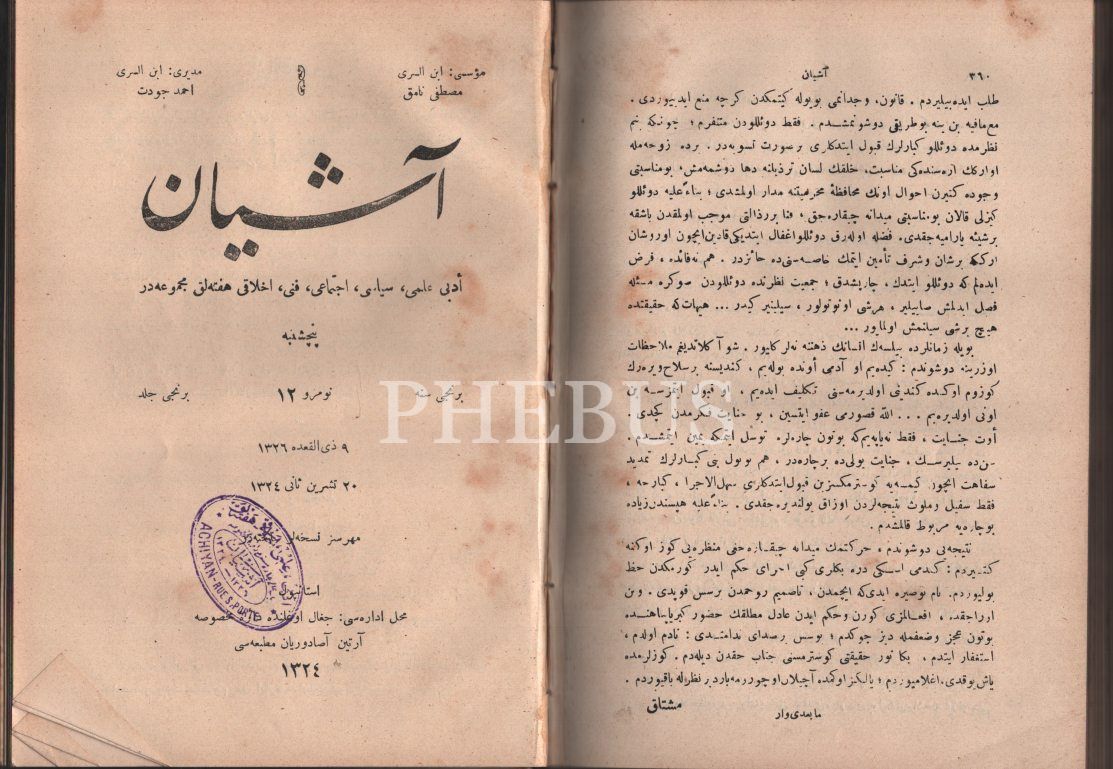 مؤسسی: ابن السری
مصطفی نامق
مدیری: ابن السری
احمد جودت
آشیان
أدبی علمی، سیاسی، اجتماعی، فنی، اخلاقی هفته‌لق مجموعه‌در
پنجشنبه
برنجی سنه
نومرو ۱۲
برنجی جلد
۹ ذی القعده ۱۳۲۶
۲۰ تشرین ثانی ۱۳۲٤
مهرسز نسخه‌لر
استانبول
محل اداره‌سی: جغال اوغلنده
آرتین آصادوریان مطبعه‌سی
۱۳۲٤
ACHIYAN-RUE S. PORTE
PHEBUS
۳٦۰
آشیان
طلب ایده‌بیلیردم . قانون، وجدانمی بویوله کیتمکدن کرچه منع ایدییوردی .
مع‌مافیه بن ینه بوطریقی دوشونمشدم . فقط دوئللودن متنفرم ؛ چونکه بنم
نظرمده دوئللو کبارلرك قبول ایتدکلری برصورت تسویه‌در . برده زوجه‌مله
اوارکك آره‌سنده‌کی مناسبت، خلقك لسان تردبانه دها دوشمه‌مش، بومناسبتی
وجوده کتیرن احوال اونك محافظهٔ محرمیتنه مدار اولمشدی ؛ بناءً علیه دوئللو
کیزلی قالان بومناسبتی میدانه چیقاره‌جق، فنا بررذالتی موجب اولمقدن باشقه
برشیئه یارامیه‌جقدی. فضله اوله‌رق دوئللو اغفال ایتدیکی قادین ایچون اوروشان
ارککه برشان وشرف تأمین ایتمك خاصه‌سنی‌ده حائزدر . هم نه‌فائده ، فرض
ایده‌لم که دوئللو ایتدك ، چارپشدق ؛ جمعیت نظرنده دوئللودن صوکره مسئله
فصل ایدلمش صاییلیر ، هرشی اونوتولور ، سیلینیر کیدر ... هیهات که حقیقتده
هیچ برشی سیلنمش اولمایور ...
بویله زمانلرده بیلسه‌ك انسانك ذهننه نه‌لر کلیور . شو آکلاتدیغم ملاحظات
اوزرینه دوشوندم : کیده‌یم او آدمی أونده بوله‌یم ، کندیسنه برسلاح ویره‌رك
کوزوم اوکنده کندینی اولدیرمه‌سنی تکلیف ایده‌یم ، او قبول ایتمزسه بن
اونی اولدیره‌یم ... الله قصورمی عفو ایتسین ، بو جنایت فکرمدن کچدی .
أوت جنایت ، فقط نه‌یاپه‌یم که بوتون چاره‌لره توسل ایتمکه یمین ایتمشدم .
سن‌ده بیلیرسك ، جنایت یولی‌ده برچاره‌در ، هم بویول بنی کبارلرك تمدید
سفاهت ایچون کیمسه‌یه کوسترمکسزین قبول ایتدکلری سهل الاجرا ، کبارجه ،
فقط سفیل وملوث نتیجه‌لردن اوزاق بولندیره‌جقدی . بناءً علیه هپسندن زیاده
بوچاره‌یه مربوط قالمشدم .
نتیجه‌یی دوشوندم ، حرکتمك میدانه چیقاره‌جغی منظره‌یی کوز اوکنه
کتیردم : کندمی اسکی دره بکلری کبی اجرای حکم ایدر کورمکدن حظ
بولیوردم. تام بوصیره‌ده ایدی‌که ایچمدن ، تاصمیم روحمدن برسس قوپدی ، وبن
اوراجقده ، افعالمزی کورن وحکم ایدن عادل مطلقك حضور کبریاپناهنده
بوتون عجز وضعفمله دیز چوکدم ؛ بوسس برصدای ندامتدی : نادم اولدم ،
استغفار ایتدم ، بکا نور حقیقتی کوسترمسنی جناب حقدن دیله‌دم . کوزلرمده
یاش یوقدی، اغلامیوردم ؛ یالکز اوکمده آچیلان اوچورومه یارد بر نظرله باقیوردم .
مشتاق
مابعدی وار